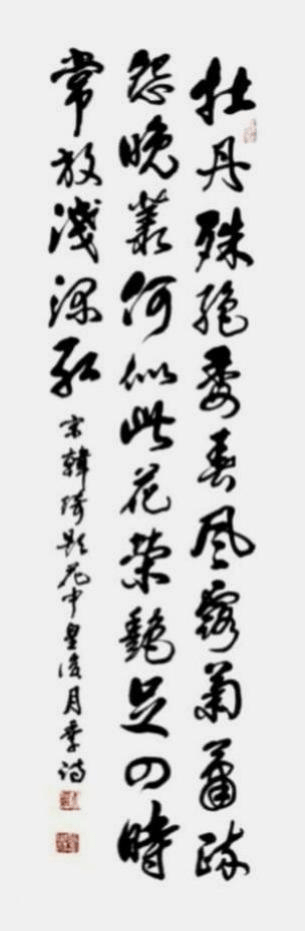 牡丹殊絕委春風露菊蕭疎
怨晚叢何似此花榮艷足四時
常放淺深紅
宋韓琦題花中皇後月季詩